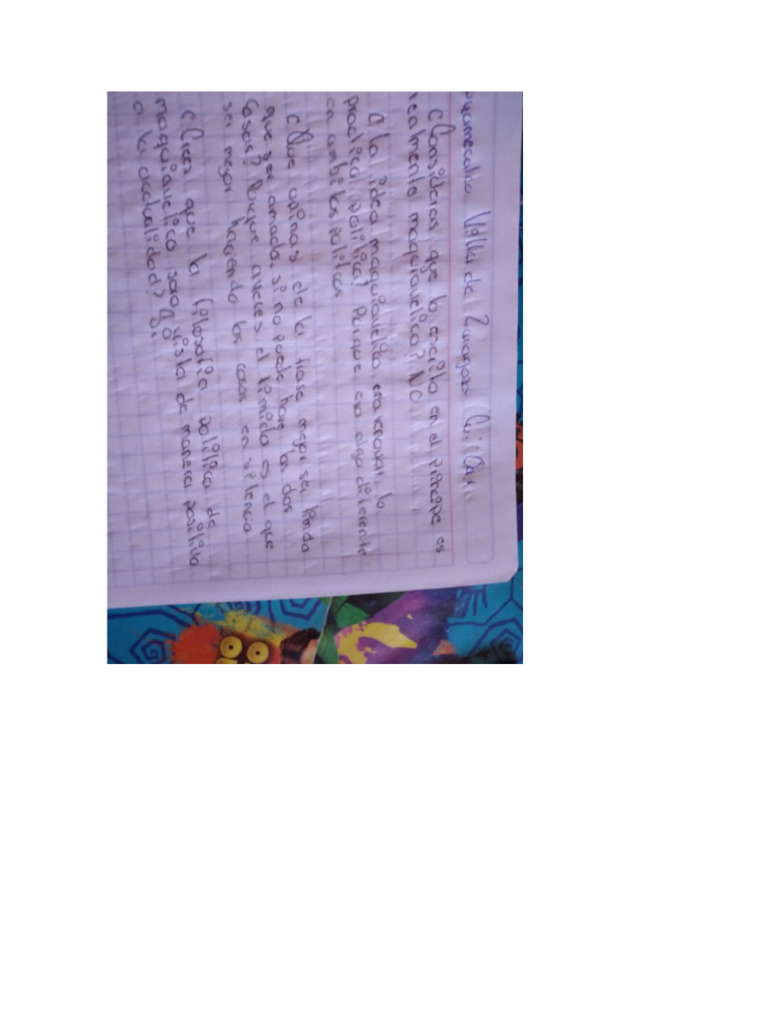 Villa de Zaragoza
¿Consideras que lo escrito en el Principe es
realmente maquiavelico? No.
¿La idea maquiavelica era innovar la
practica politica? Porque era algo diferente
en ambitos politicos
¿Que opinas de la frase mejor ser timido
que ser amado, si no puede hacer las dos
cosas? Porque aveces el timido es el que
ser mejor haciendo las cosas en silencio
¿Crees que la filosofia politica de
maquiavelico sea vista de manera positiva
a la actualidad? Si